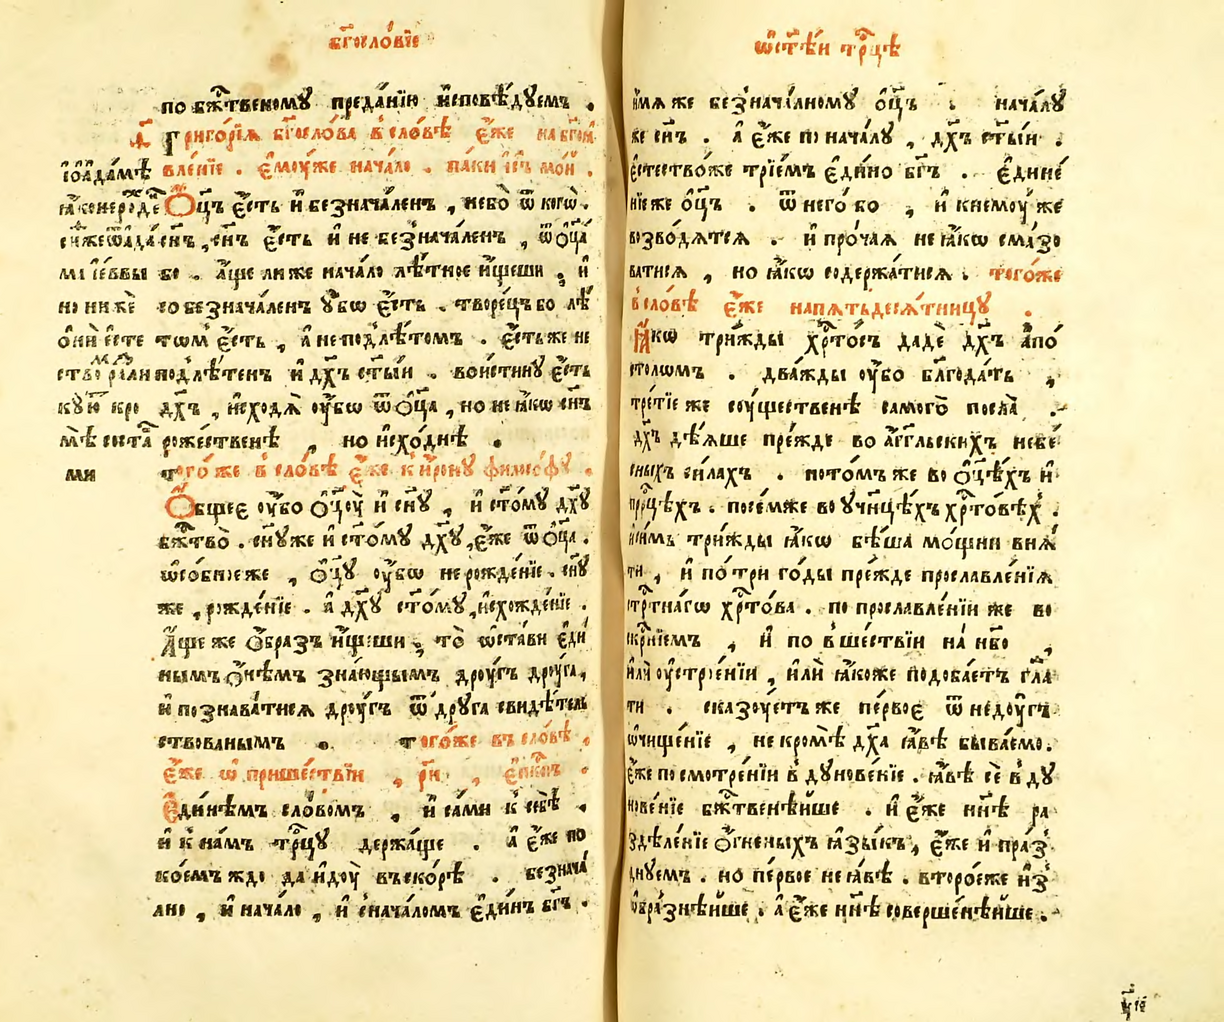 бг҃ословїе
по бж҃твеному преда́нїю и҆сповѣ́дуемъ .
Григо́рїѧ бг҃осло́ва в сло́вѣ є҆́же на бг҃оѧ
вле́нїе . є҆моу́же нача́ло . па́ки і҆с҃ъ мо́й .
ѻ҆ц҃ъ є҆́сть и҆ безнача́ленъ , небо̀ ѿ кого̀ .
сн҃ъ є҆́сть и҆ не безнача́ленъ , ѿ ѻ҆ц҃а
бо . а҆́ще ли же нача́ло лѣ́тное и҆́щеши , и҆
собезнача́ленъ у҆́бѡ є҆́сть . творе́цъ бо лѣ́
томъ є҆́сть , а҆ не под̾лѣ́томъ . є҆́сть же не
под̾лѣ́тенъ и҆ дх҃ъ ст҃ы́и . вои́стину є҆́сть
дх҃ъ , и҆сходѧ̀ ѹ҆́бѡ ѿ ѻ҆ц҃а , но не ꙗ҆́кѡ сн҃ъ
ро́жественѣ , но и҆схо́днѣ .
і҆ѡ҆а́дамѣ
ꙗ҆́коне роде́
сѧ́же ѿ а҆да́
ма і҆є́ввы
но ни жѐ
о҆нѝ є҆сте
ство
ра́зли
ку́ю кро
мѣ̀ соста́
ми
того́ же в сло́вѣ є҆́же к и҆́рону филосо́фу .
ѻ҆́бщее ѹ҆́бо ѻ҆ц҃оу̀ и҆ сн҃у , и҆ ст҃о́му дх҃у
бж҃тво̀ . сн҃у же и҆ ст҃о́му дх҃у , є҆́же ѿ ѻ҆ц҃а .
ѡ҆со́бное же , ѻ҆ц҃у ѹ҆́бѡ нерожде́нїе . сн҃у
же , рожде́нїе . а҆ дх҃у ст҃о́му , и҆схожде́нїе .
а҆́ще же ѻ҆́бразъ и҆́щеши , то̀ ѡ҆ста́ви є҆ди́
нымъ ѻ҆́нѣмъ зна́ющымъ дроу́гъ дроу́га ,
и҆ познава́тисѧ дроу́гъ ѿ дру́га свидѣ́тель
ствованымъ . того́же въ сло́вѣ .
є҆́же ѡ҆ прише́ствїи , рн҃ , є҆пк҃пъ .
є҆ди́нѣмъ сло́вомъ , и҆ са́ми к себѣ̀ ,
и҆ к на́мъ тр҃цу держа́ще . а҆ є҆́же по
кое́мъ ждо да и҆доу́ въско́рѣ . безнача́
лно , и҆ нача́ло , и҆ с нача́ломъ є҆ди́нъ бг҃ъ .
ѡ ст҃ѣ́и тр҃цѣ
и҆́мѧ же безнача́лному ѻ҆ц҃ъ . нача́лу
же сн҃ъ . а҆ є҆́же по нача́лу , дх҃ъ ст҃ы́и .
є҆стество́же трїе́мъ є҆ди́но бг҃ъ . є҆дине́
нїе же ѻ҆ц҃ъ . ѿ него́ бо , и҆ к немоу́ же
возво́дѧтсѧ . и҆ про́чаѧ не ꙗ҆́кѡ смазо
ватисѧ , но ꙗ҆́кѡ содержа́тисѧ . того́же
в сло́вѣ є҆́же на пѧтьдесѧ́тницу .
ꙗ҆́кѡ три́жды хр҃то́съ дадѐ дх҃ъ а҆по́
столѡмъ . два́жды ѹ҆́бо бл҃года́ть ,
тре́тїе же соу́щественѣ самого̀ посла̀ .
дх҃ъ дѣ́ѧше пре́жде во а҆́гг҃льскихъ небе́
сныхъ си́лахъ . пото́мъ же во ѻ҆ц҃ѣ́хъ и҆
пр҃рцѣ́хъ . посе́мже во у҆чн҃цѣ́хъ хр҃то́вѣхъ .
и҆си́мъ три́жды ꙗ҆́кѡ бѣ́ша мо́щни внѧ́
ти , и҆ по́ три го́ды пре́жде прославле́нїѧ
стр҃тна́гѡ хр҃то́ва . по прославле́нїи же во
скр҃нїемъ , и҆ по в̾ше́ствїи на́ нб҃о ,
и҆лѝ ѹ҆строе́нїи , и҆лѝ ꙗ҆́коже подоба́етъ гл҃а
ти . сказоу́етъ же пе́рвое ѿ недоу́гъ
ѡ҆чище́нїе , не кро́мѣ дх҃а ꙗ҆́вѣ быва́емо .
є҆́же по смотре́нїи в̾дунове́нїе . ꙗ҆́вѣ сѐ в̾ду
нове́нїе бж҃твенѣ́йше . и҆ є҆́же нн҃ѣ ра
здѣле́нїе ѻ҆́гненыхъ ꙗ҆зы́къ , є҆́же и҆ пра́з
днуемъ . но пе́рвое не ꙗ҆́вѣ . второ́еже и҆з̾
ѡ҆бра́знѣйше . а҆ є҆́же нн҃ѣ соверше́нѣйше .